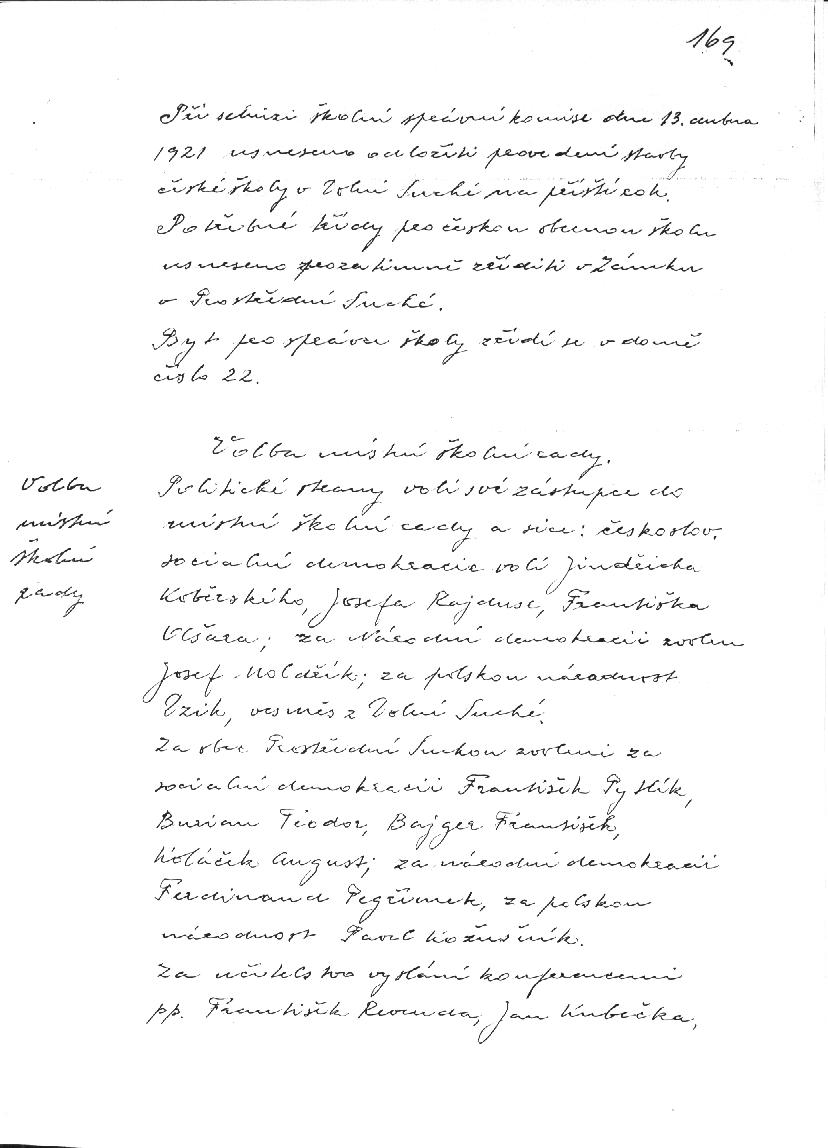 169
Při schůzi školní správní komise dne 13. dubna
1921 usneseno odložiti provedení stavby
české školy v Dolní Suché na příští rok.
Potřebné třídy pro českou obecnou školu
usneseno prozatimně zříditi v Zámku
v Prostřední Suché.
Byt pro správce školy zřídí se v domě
číslo 22.
Volba místní školní rady.
Volba
místní
školní
rady
Politické strany volí své zástupce do
místní školní rady a sice: českoslov.
sociální demokracie volí Jindřicha
Kobĕrského, Josefa Rajduse, Františka
Olšara; za Národní demokracii zvolen
Josef Moldřík; za polskou národnost
Uzik, vesměs z Dolní Suché.
Za obec Prostřední Suchou zvoleni za
sociální demokracii František Pytlík,
Burian Teodor, Bajger František,
Koláček August; za národní demokracii
Ferdinand Pegřimek, za polskou
národnost Pavel Kožušník.
Za učitelstvo vysláni konferencemi
pp. František Revenda, Jan Kubečka,